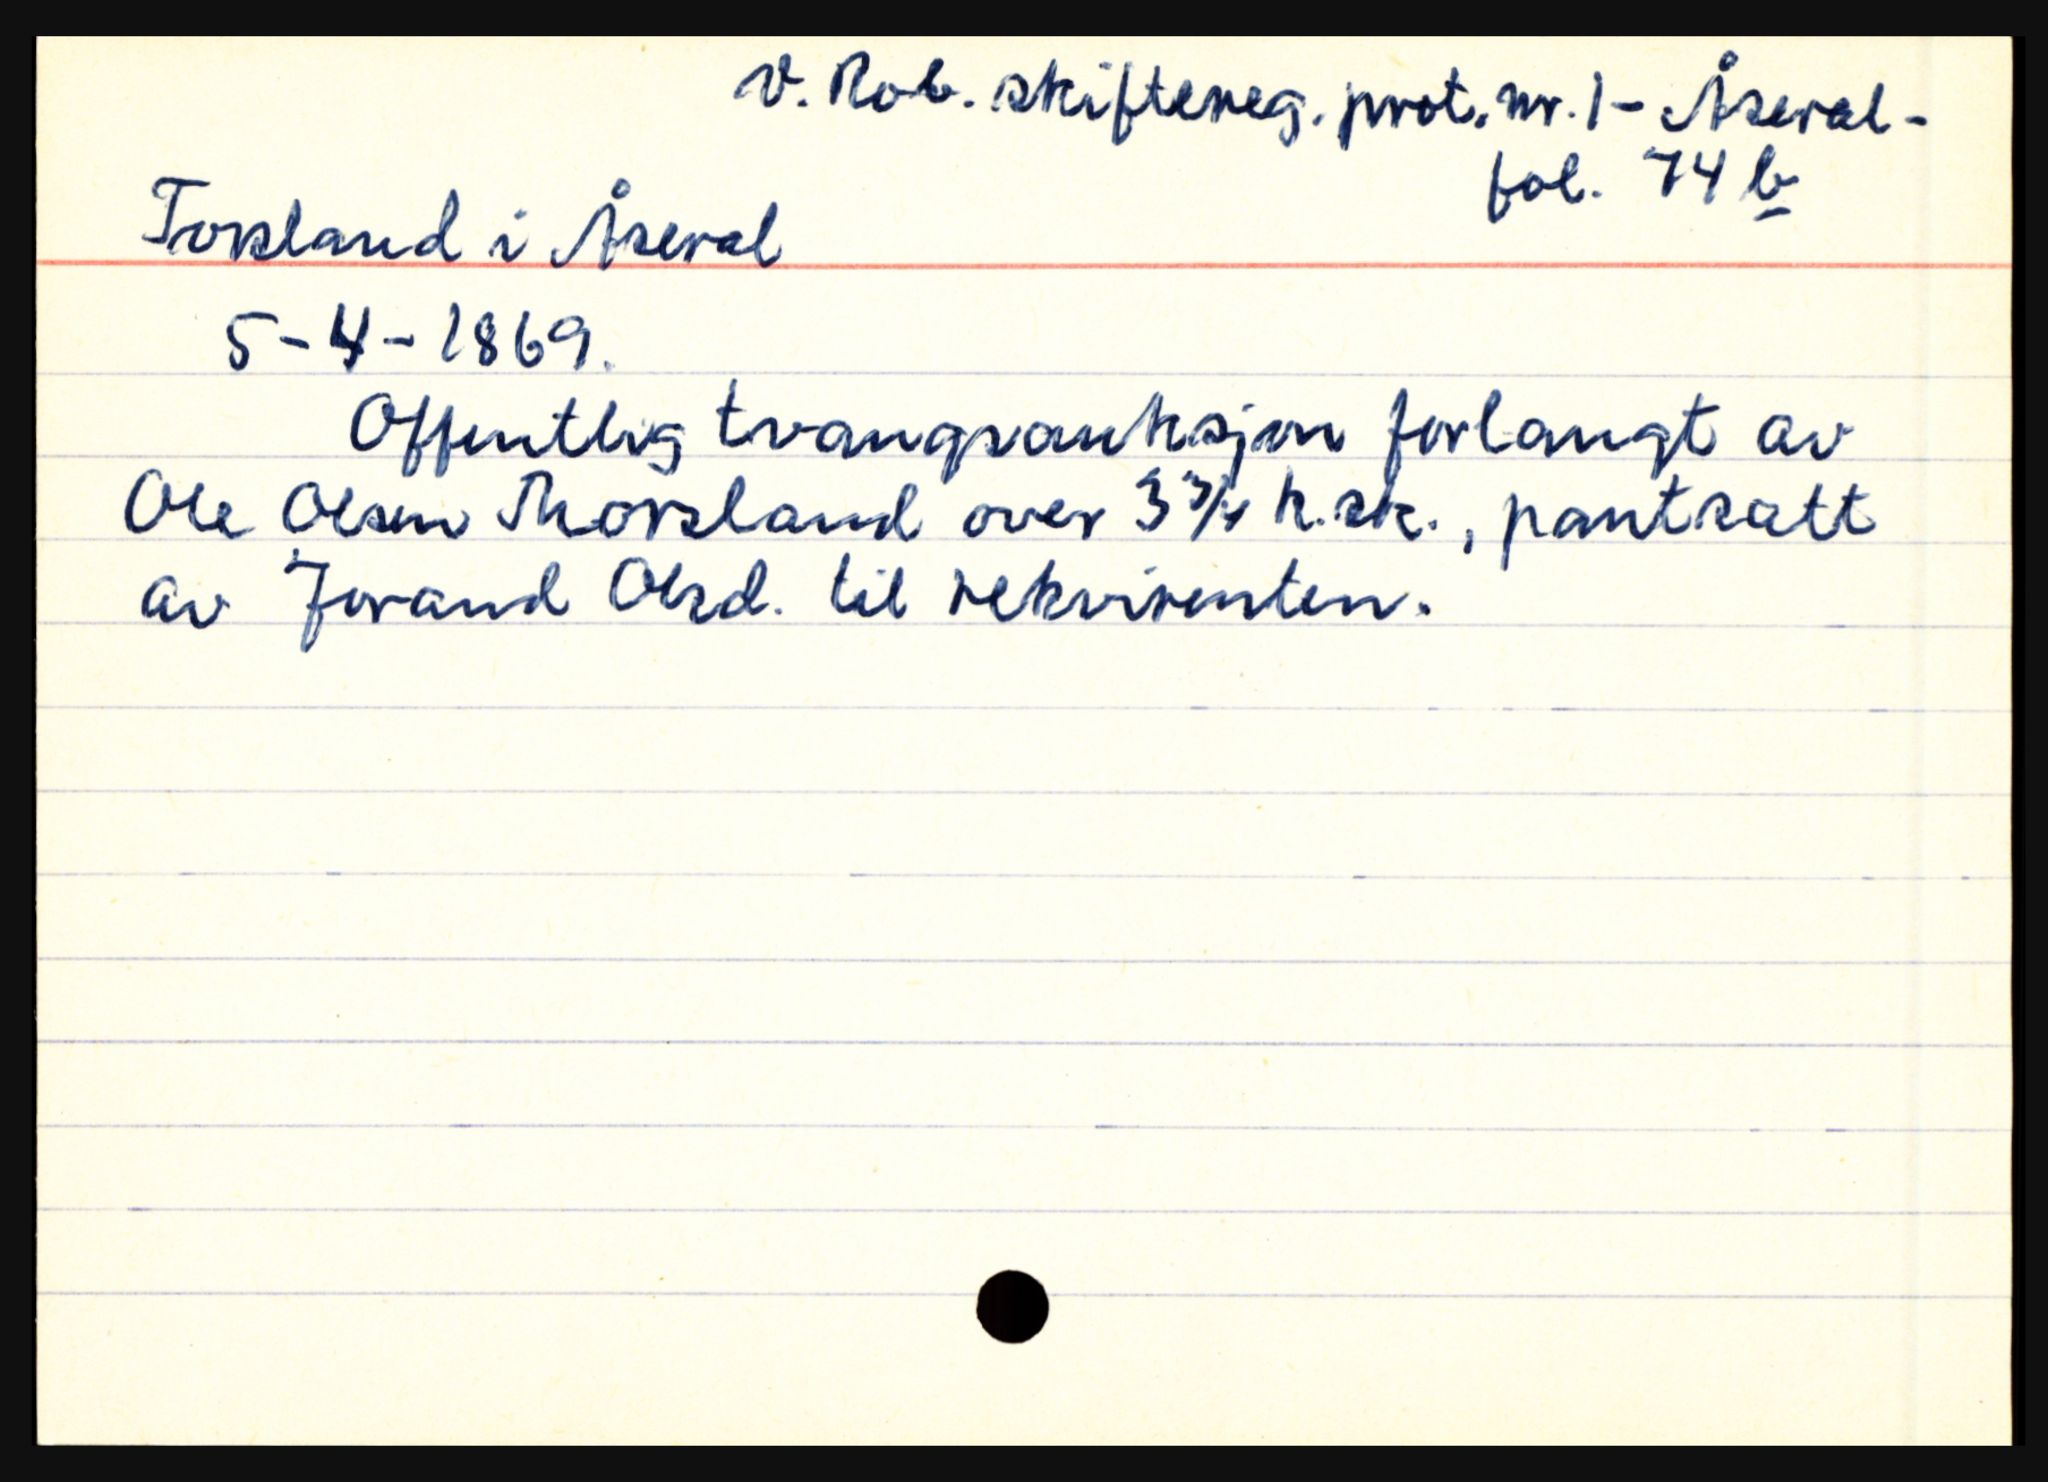 V. Rob. skiftereg. prot. nr. 1 - Åseral -
fol. 74 b
Torsland i Åseral
5-4-1869.
Offentlig tvangsauksjon forlangt av
Ole Olsen Thorsland over 3 3/4 k.sk., pantsatt
av Jorand Olsd. til rekvirenten.